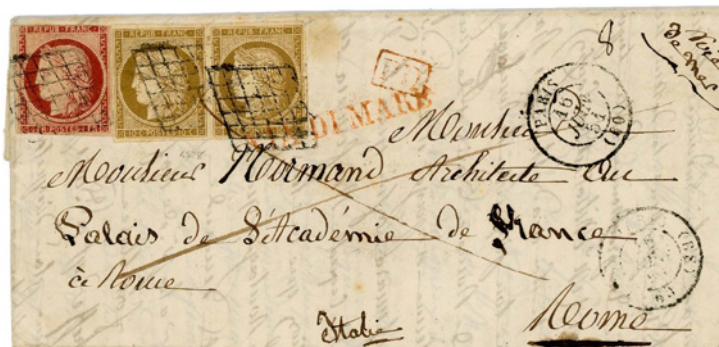 REPUB. FRANC. REPUB. FRANC. REPUB. FRANC.
8
Voie
de mer
VIA DI MARE
PARIS
(60)
Monsieur
Monsieur Normand Architecte au
Palais de L'Académie de France
à Rome
Italie
Rome